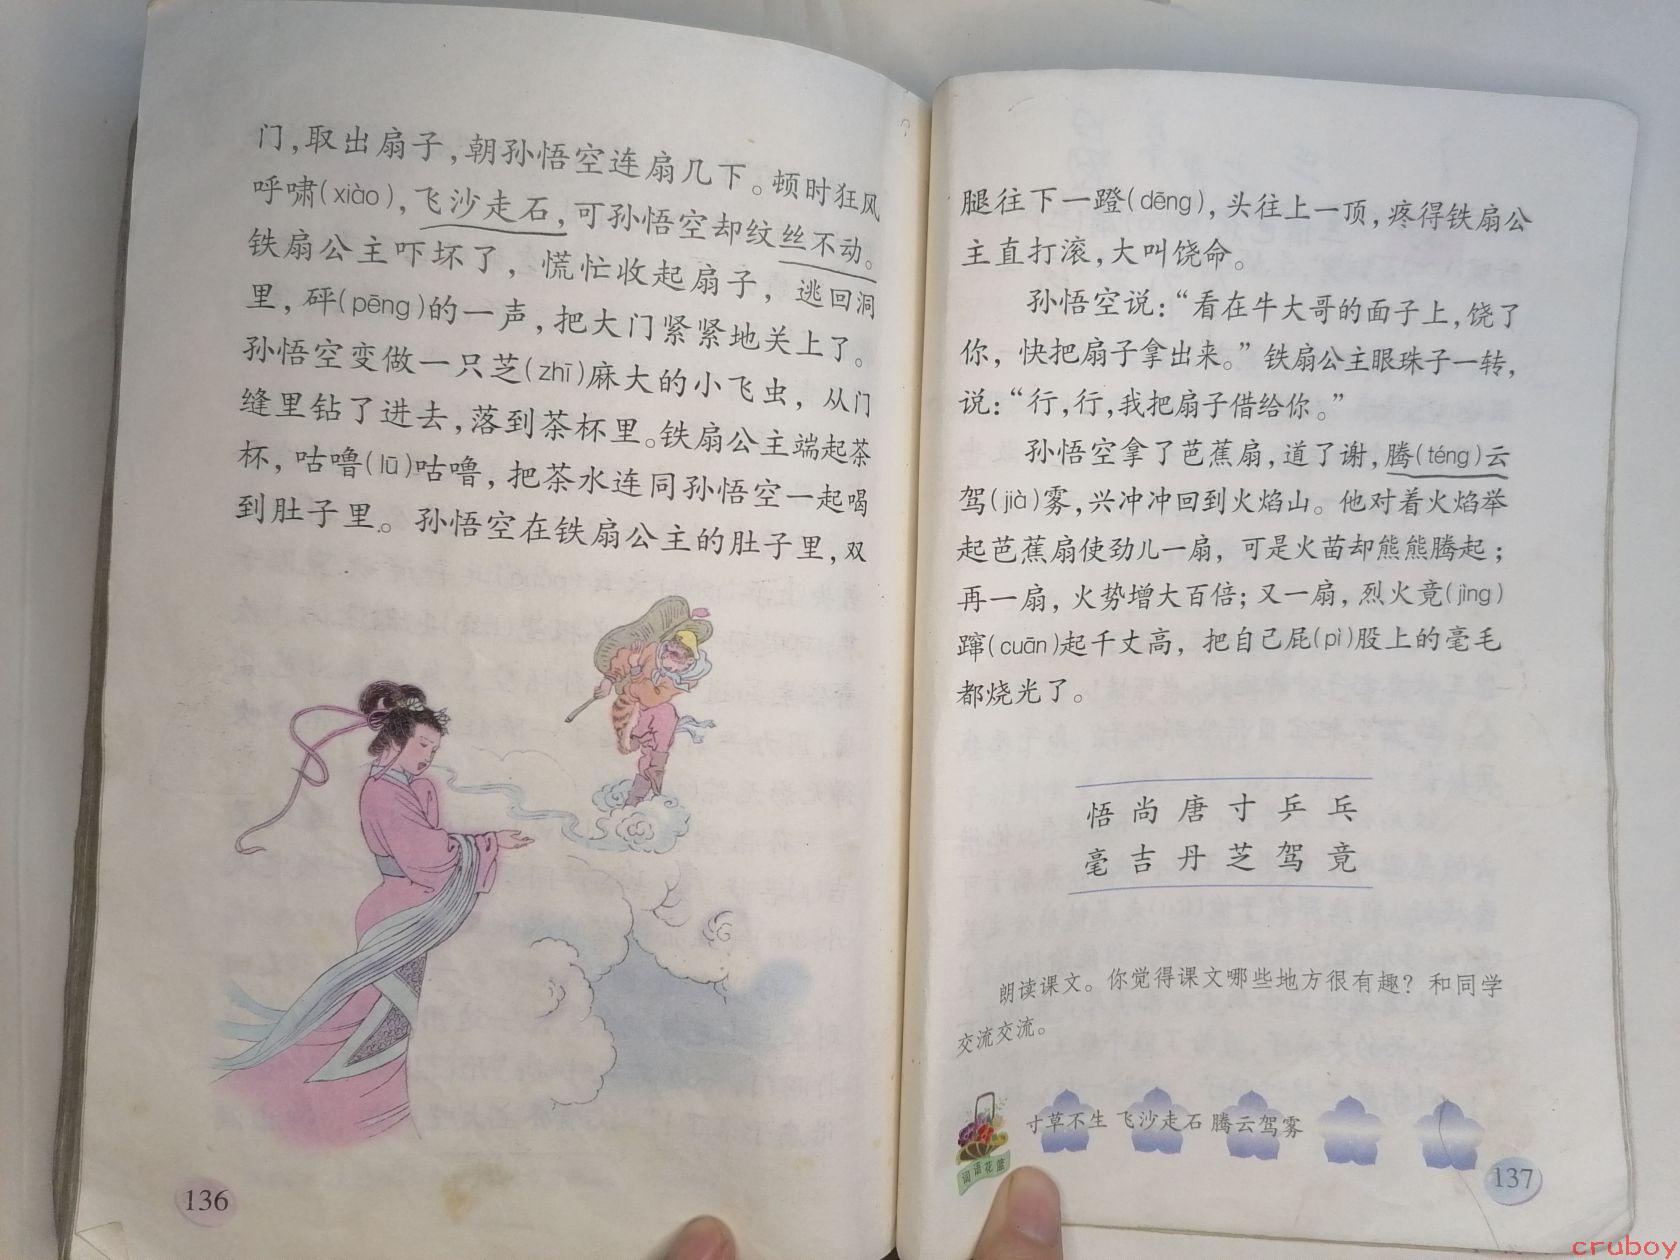 门，取出扇子，朝孙悟空连扇几下。顿时狂风
呼啸(xiào)，飞沙走石，可孙悟空却纹丝不动。
铁扇公主吓坏了，慌忙收起扇子，逃回洞
里，砰(pēng)的一声，把大门紧紧地关上了。
孙悟空变做一只芝(zhī)麻大的小飞虫，从门
缝里钻了进去，落到茶杯里。铁扇公主端起茶
杯，咕噜(lū)咕噜，把茶水连同孙悟空一起喝
到肚子里。孙悟空在铁扇公主的肚子里，双
136
腿往下一蹬(dēng)，头往上一顶，疼得铁扇公
主直打滚，大叫饶命。
孙悟空说：“看在牛大哥的面子上，饶了
你，快把扇子拿出来。”铁扇公主眼珠子一转，
说：“行，行，我把扇子借给你。”
孙悟空拿了芭蕉扇，道了谢，腾(téng)云
驾(jià)雾，兴冲冲回到火焰山。他对着火焰举
起芭蕉扇使劲儿一扇，可是火苗却熊熊腾起；
再一扇，火势增大百倍；又一扇，烈火竟(jìng)
蹿(cuān)起千丈高，把自己屁(pì)股上的毫毛
都烧光了。
悟 尚 唐 寸 乒 乓
毫 吉 丹 芝 驾 竟
朗读课文。你觉得课文哪些地方很有趣？和同学
交流交流。
词语花篮
寸草不生 飞沙走石 腾云驾雾
137
cruboy